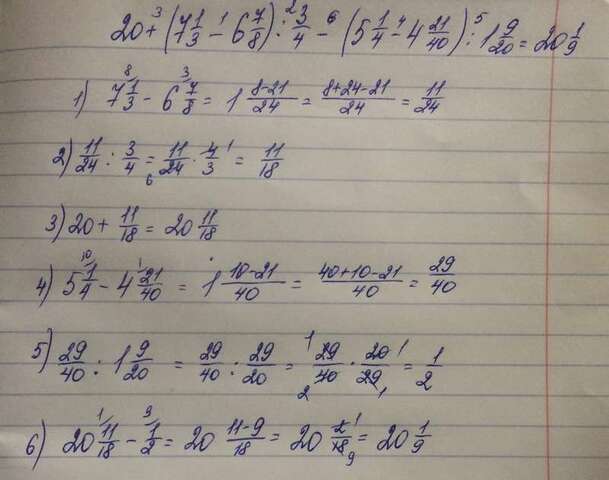 20 + (7 1/3 - 6 7/8) : 3/4 - (5 1/4 - 4 21/40) : 1 9/20 = 20 1/9
1) 7 1/3 - 6 7/8 = 1 8-21/24 = 8+24-21/24 = 11/24
2) 11/24 : 3/4 = 11/24 · 4/3 = 11/18
3) 20 + 11/18 = 20 11/18
4) 5 1/4 - 4 21/40 = 1 10-21/40 = 40+10-21/40 = 29/40
5) 29/40 : 1 9/20 = 29/40 : 29/20 = 29/40 · 20/29 = 1/2
6) 20 11/18 - 1/2 = 20 11-9/18 = 20 2/18 = 20 1/9